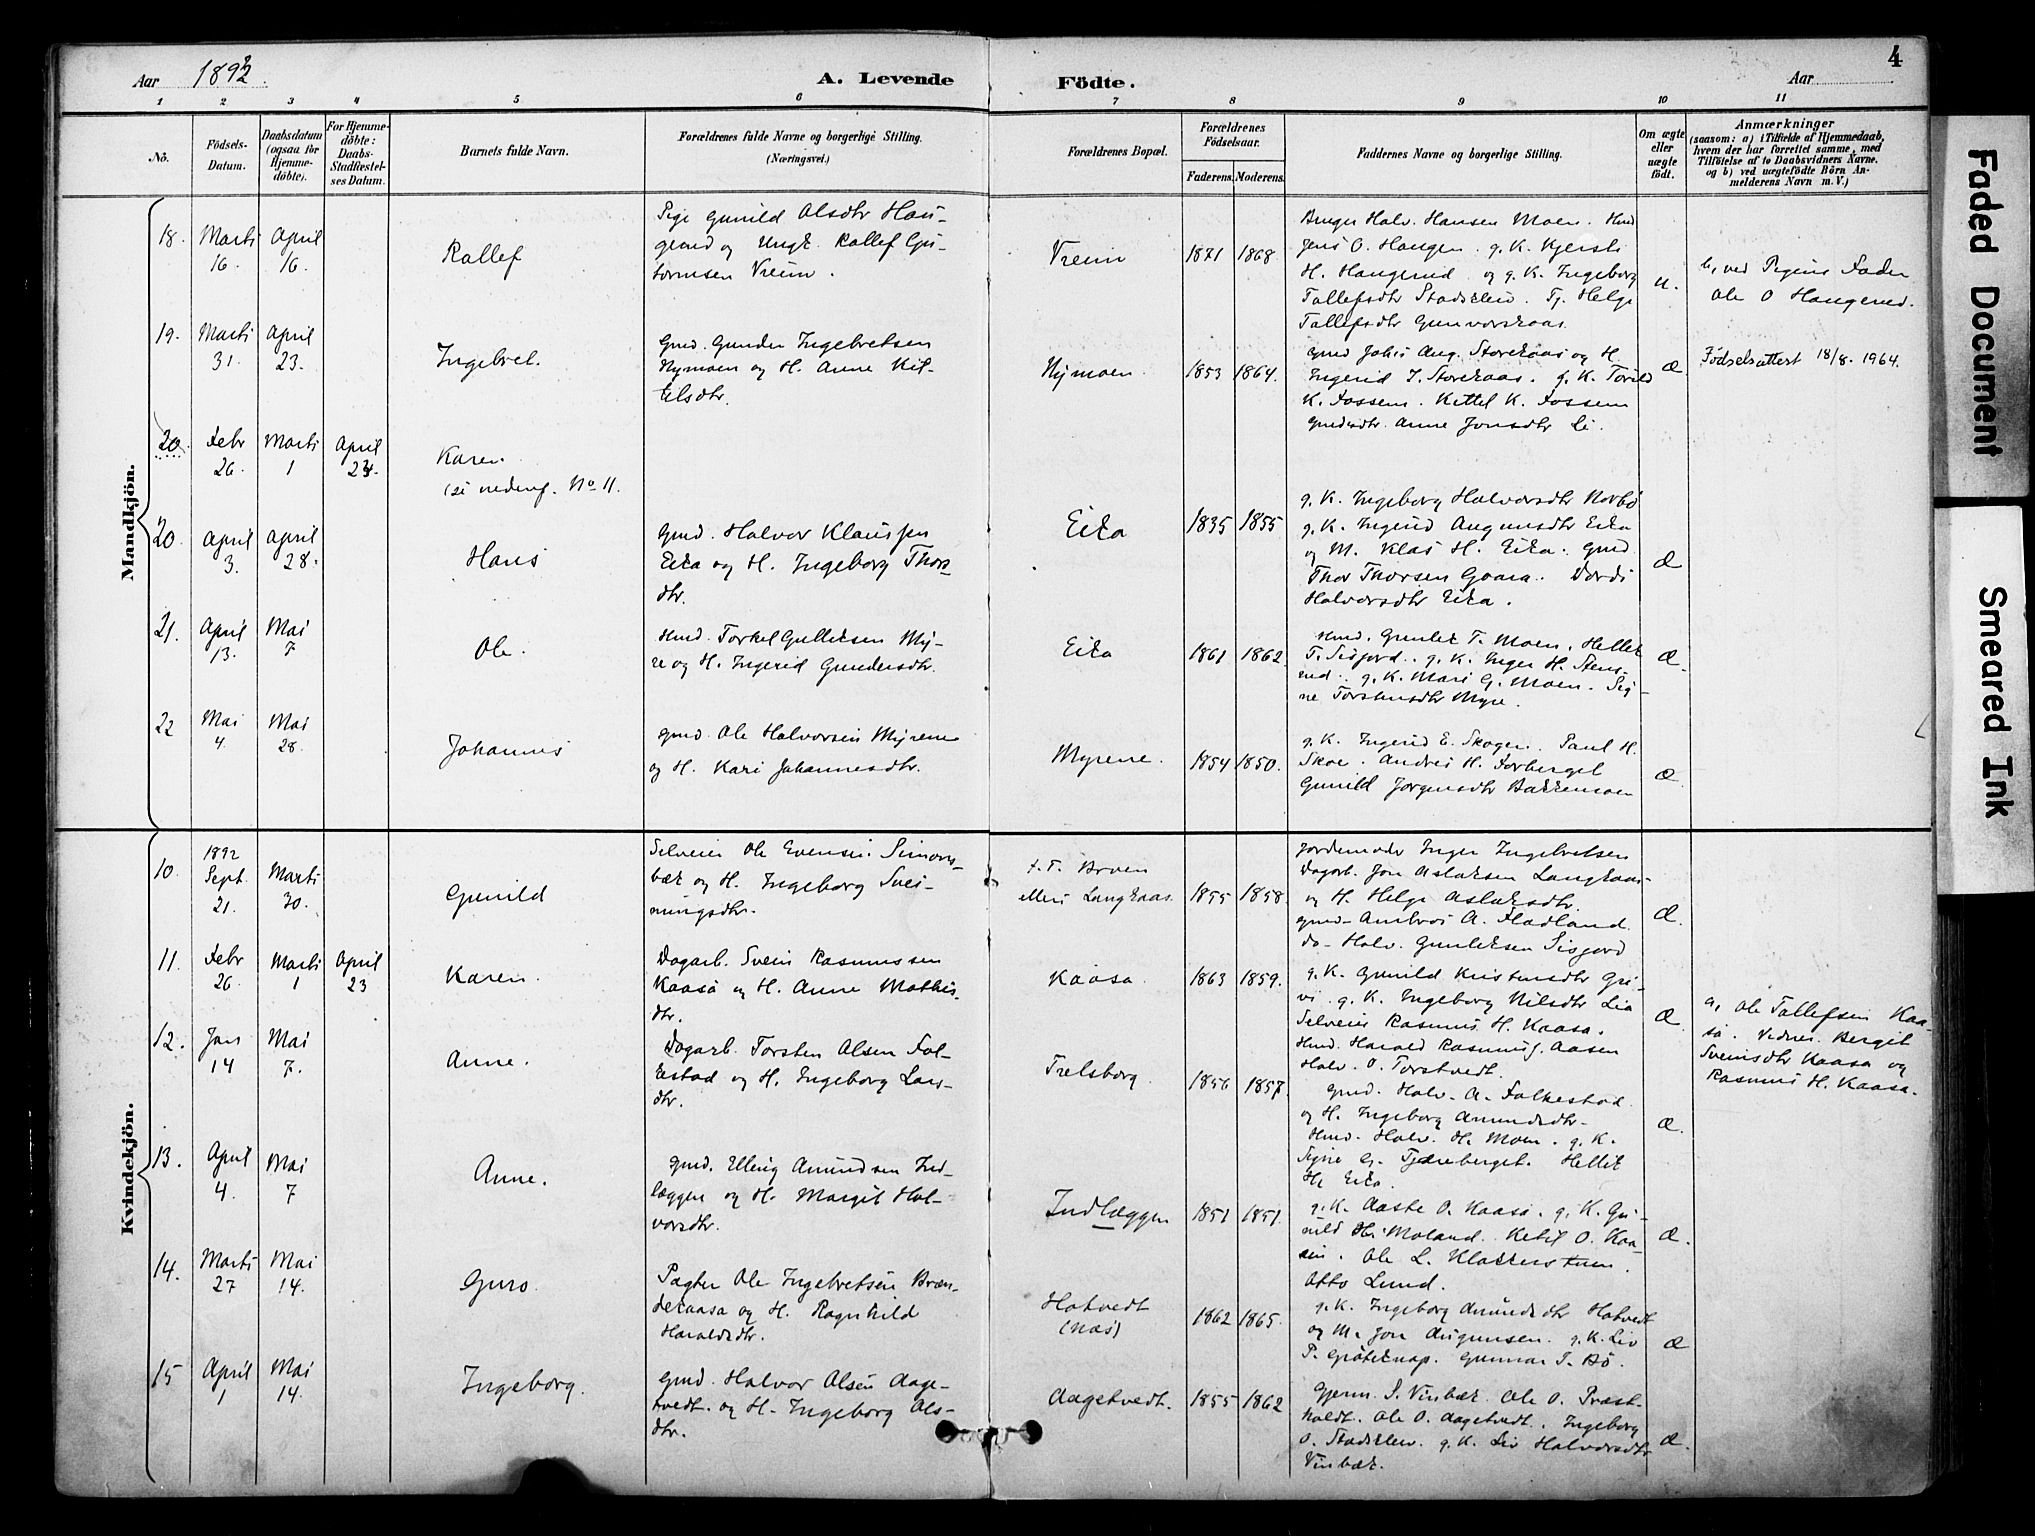 Aar 1893.
A. Levende Födte.
Aar
4
1 2 3 4 5 6 7 8 9 10 11
No.
Födsels-
Datum.
Daabsdatum
(ogsaa for
Hjemme-
döbte).
For Hjemme-
döbte:
Daabs-
Stadfæstel-
ses Datum.
Barnets fulde Navn.
Forældrenes fulde Navne og borgerlige Stilling.
(Næringsvei.)
Forældrenes Bopæl.
Forældrenes
Födselsaar.
Faderens. Moderens.
Faddernes Navne og borgerlige Stilling.
Om ægte
eller
uægte
födt.
Anmærkninger
(saasom: a) i Tilfælde af Hjemmedaab,
hvem der har forrettet samme, med
Tilföielse af to Daabsvidners Navne.
og b) ved uægtefödte Börn An-
melderens Navn m. V.)
Mandkjön.
18.
Marts
16.
April
16.
Rallef
Pige Gunild Olsdtr Hau-
gerud og Ungk. Rallef Gu-
tormsen Vreim.
Vreim
1871 1868
Bruger Halv. Hansen Moen. Hmd
Jens O. Haugen. g. K. Kjersti
H. Haugerud og g. K. Ingeborg
Tallefsdtr Stadskleiv. Tj. Helge
Tallefsdtr Gunvorskaas.
u.
b, ved Pigens Fader
Ole O Haugerud.
19.
Marts
31.
April
23.
Ingebret.
Gmd. Gunder Ingebretsen
Nymoen og H. Anne Kit-
tilsdtr.
Nymoen.
1853 1864.
Gmd Johs Aug. Storekaas og H.
Ingerid J. Storekaas. g. K. Torild
K. Fossem. Kittel K. Fossem
Gmdsdtr. Anne Jonsdtr Li.
Æ
Födselsattest 18/8. 1964.
20.
Febr
26.
Marts
1
April
23.
Karen.
(se nedenf. No 11.
20.
April
3.
April
28.
Hans
Gmd. Halvor Klaussen
Eika og H. Ingeborg Thors-
dtr.
Eika
1835 1855
g. K. Ingeborg Halvorsdtr Norbö
g. K. Ingerid Aagunsdtr Eika
og M. Klas H. Eika. Gmd.
Thor Thorsen Gaara. Dordi
Halvorsdtr Eika.
Æ
21.
April
13.
Mai
7
Ole.
Hmd. Torkel Gulliksen My-
re og H. Ingerid Gundersdtr.
Eika
1861 1862
Hmd. Gunlek T. Moen. Hellek
T. Sisjord. g. K. Inger H. Stens-
rud. g. K. Mari G. Moen. Sig-
ne Torstensdtr Myre.
Æ.
22
Mai
4.
Mai
28.
Johannes
Gmd. Ole Halvorsen Myrene
og H. Kari Johannesdtr.
Myrene.
1854 1850.
g. K. Ingerid E. Skogen. Paul H.
Skoe. Andres H. Forberget
Gunild Jörgensdtr Bakkemoen
Æ
Kvindekjön.
10.
1892
Sept.
21.
Marts
30.
Gunild
Selveier Ole Evensen Simons-
bæk og H. Ingeborg Svei-
nungsdtr.
f. T. Broen
eller Langkaas.
1855 1858
Jordemoder Inger Ingebretsen
Dagarb. Jon Aslaksen Langkaas
og H. Helge Aslaksdtr.
Gmd. Ambros A. Fladland.
do- Halv. Gunleksen Sisjord
Æ.
11.
Febr
26.
Marts
1
April
23
Karen.
Dagarb. Svein Rasmussen
Kaasa og H. Anne Mathis-
dtr.
Kaasa
1863 1859.
g. K. Gunild Kristensdtr Gri-
vi. g. K. Ingeborg Nilsdtr Lia
Selveier Rasmus H. Kaasa.
Hmd. Harald Rasmus. Aasen
Halv. O. Torstvedt.
Æ.
a, Ole Tallefsen Kaa-
sa. Vidner. Bergit
Sveinsdtr Kaasa og
Rasmus H. Kaasa.
12.
Jan
14
Mai
7.
Anne.
Dagarb. Torsten Olsen Fol-
kestad og H. Ingeborg Lars-
dtr.
Trelsborg
1856 1857.
Gmd. Halv. A. Folkestad.
og H. Ingeborg Amundsdtr-
Hmd. Halv. H. Moen. g. K.
Signe G. Tjæreberget. Hellik
H. Eika.
Æ.
13.
April
4.
Mai
7
Anne.
Gmd. Elling Amundsen Ind-
læggen og H. Margit Hal-
vorsdtr.
Indlæggen
1851 1851.
g. K. Aaste O. Kaasa. g. K. Gu-
nild H. Moland. Ketil O. Kaa-
sen. Ole L. Klokkerstuen.
Otto Lund.
Æ.
14.
Marts
27
Mai
14.
Guro.
Pagter Ole Ingebretsen Bræn-
dekaasa og H. Ragnhild
Haraldsdtr.
Hotvedt
(Næs)
1862 1865.
g. K. Ingeborg Amundsdtr Hotvedt
og M. Jon Augunsen. g. K. Liv
P. Gröteknap. Gunnar T. Bö.
Æ
15
April
1
Mai
14.
Ingeborg.
Gmd. Halvor Olsen Aage-
tvedt. og H. Ingeborg Ols-
dtr.
Aagetvedt.
1855 1862
Gjerm. S. Vinbæk. Ole O. Præst-
holdt. Ole O. Aagetvedt. Ingeborg
O. Stadskleiv. g. K. Liv Halvorsdtr
Vinbæk.
Æ.
Faded Document
Smeared Ink